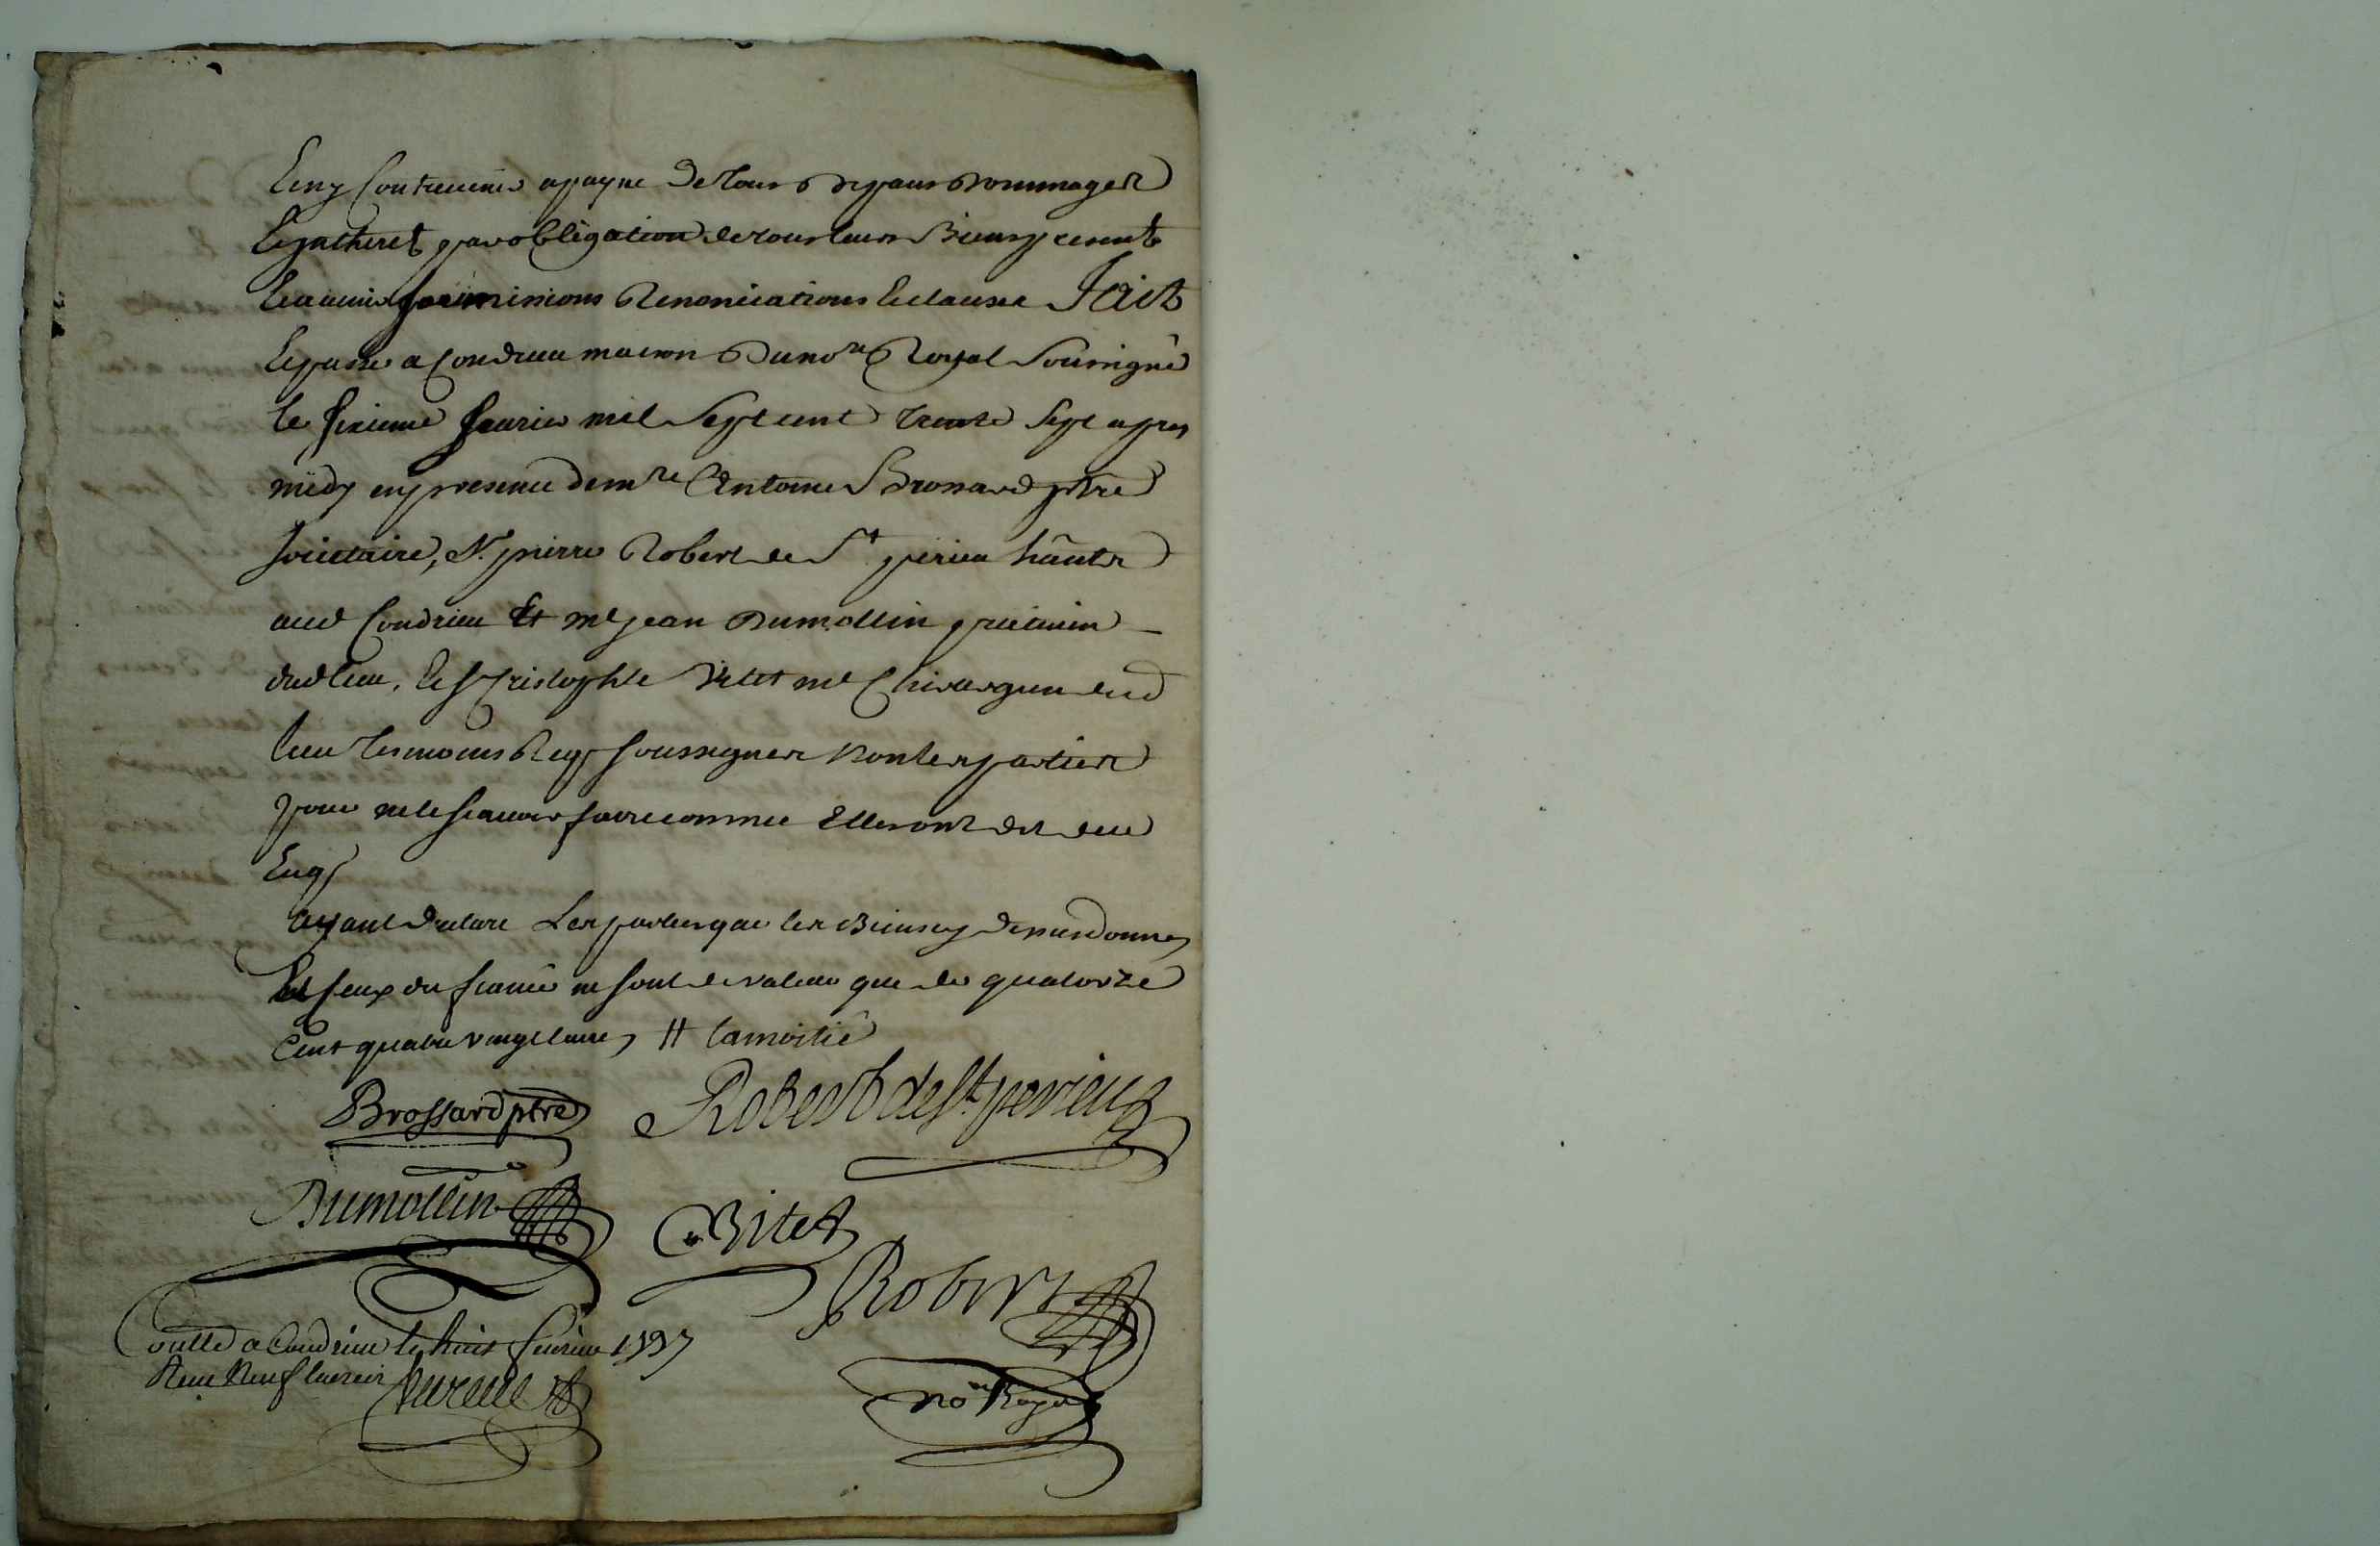 Eny Contrevenir a payne de tous depans dommages
Et jnthérèt par obligation de tous leurs Biens presents
Et a venir sousmissions Renonciations Et clauses Fait
Et passé a Condrieu maison du no.re Royal Soussigné
le sixieme fevrier mil Sept cent trente Sept apres
midy en presence de m.re Antoine Brossard ptre
societaire, Sr. pierre Robert de St perieu hântz
aud Condrieu Et me jean Dumollin praticien
dud lieu, Et Sr Cristophle Vitet me Chirurgien dud
lieu tesmoins Reqs soussignez non les parties
pour ne le scavoir faire comme Elles ont dit de ce
Enqs
ayant declaré Les parties que les Biens cy dessus donnes
Et ceux du fiancé ne sont de valeur que de quatorze
Cent quatre vingt livres # la moitié
Brossard ptre Robert de St perieu
Dumollin Vitet
Robert
Conllé a Condrieu le huit fevrier 1737
Receu Neuf livres
no.re Royal